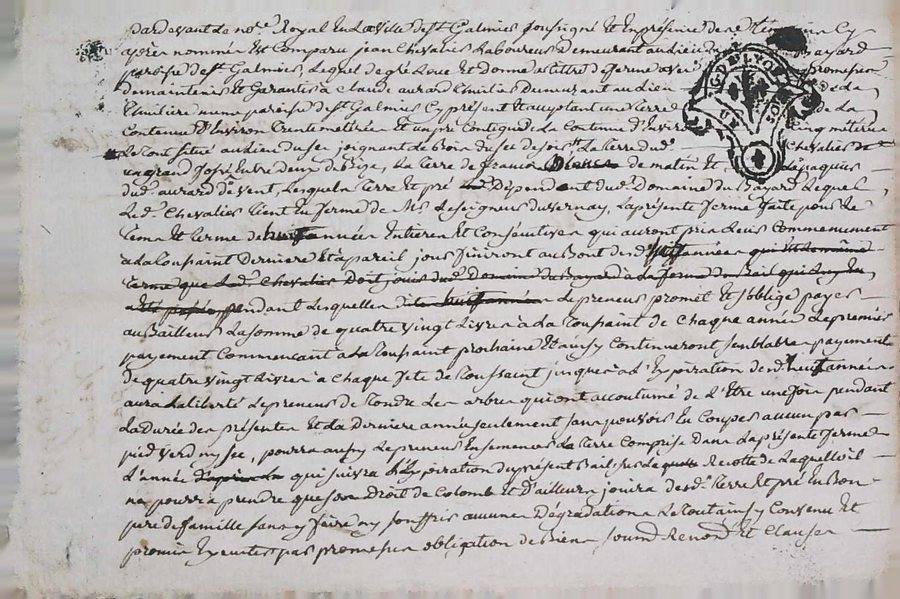 pardevant le no.re Royal en la ville de s.t Galmier soussigné et en présence de
après nommés est Comparu jean Chevalier Laboureur Demeurant au lieu du Bayard
paroisse de s.t Galmier, Lequel de gré Loue et donne a tittre de ferme avec promesse
de maintenir et Garantir à Claude aurard Demeurant au lieu de la
même paroisse de s.t Galmier Cy présent et acceptant une terre de la
Contenue D'Environ trente metérées et un pré Contigu de la Contenue D'Environ Cinq méterées
Le tout situé au lieu joignant de La terre dud. Chevalier de
de bize, La terre de de matin et
dud. aurard de vent, Lesquels terre et pré Dépendent du Domaine du Bayard Lequel
Led. Chevalier tient en ferme de M.r Le seigneur Duvernay, La présente ferme faite pour Le
tems et terme de années Entieres et Consécutives qui auront pris Leur Commencement
a La toussaint Derniere et à pareil jour finiront au Bout desd. années qui
terme que Led. Chevalier Doit jouir dud. Domaine du Bayard
pendant Lesquelles Le preneur promet et s'oblige payer
au Bailleur La somme de quatre vingt Livres à La toussaint de Chaque année Le premier
payement Commencant à La toussaint prochaine et ainsy Continueront semblables payements
de quatre vingt Livres à Chaque fete de toussaint jusques à L'Expiration desd. années
aura La liberté Le preneur de tondre Les arbres qui ont accoutumé de L'Etre une fois pendant
La durée des présentes et La Derniere année seulement sans pouvoir En Couper aucun par
pied verd ny sec, pourra aussy Le preneur Ensemencer La terre Comprise Dans La présente ferme
L'année qui suivra L'Expiration du présent Bail, sur La Recolte de Laquelle il
ne pourra prendre que son Droit de Colomb et D'ailleurs jouira desd. terre et pré en Bon
pere de famille sans y faire ny souffrir aucunes Dégradations Le tout ainsy Convenu et
promis Executer par promesses obligation de Biens soumis Renon et Clauses